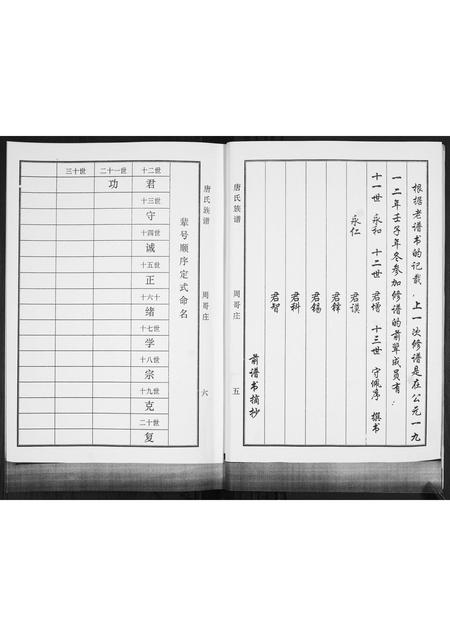 根据老谱书的记载，上一次修谱是在公元一九
一二年壬子年冬参加修谱的前辈成员有：
十一世 永和 十二世 君增 十三世 守佩序 撰书
永仁 君谟
君铎
君锡
君科
君智
前谱书摘抄
唐氏族谱 周哥庄 五
唐氏族谱 周哥庄 六
辈号顺序定式命名
十二世 君 十三世 守 十四世 诚 十五世 正 十六十 绪 十七世 学 十八世 宗 十九世 克 二十世 复
二十一世 功
三十世